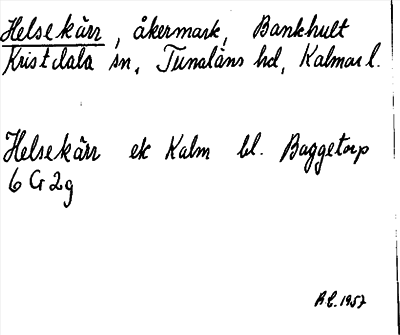 Helsekärr, åkermark, Bankhult
Kristdala sn, Tunaläns hd, Kalmar l.
Helsekärr ek Kalm bl. Baggetorp
6 G 2g
A.C. 1957